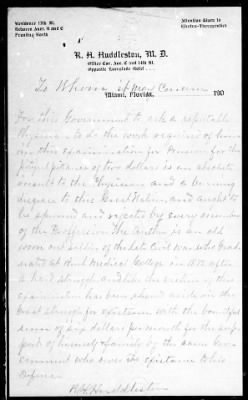 Residence 13th St.
Between Aves. B and C
Fronting North
Attention Given to
Electro-Therapeutics
R. H. Huddleston, M. D.
Office Cor. Ave. C and 14th St.
Opposite
Miami, Florida, 190
To Whom it May Concern
For this Government to ask a reputable
Physician to do the work required of him
in this examination for Pension for the
pitiful pittance of two dollars is an absolute
insult to the Physician and a burning
disgrace to this Great Nation, and ought to
be spurned and rejected by every member
of the Profession. The writer is an old
worn out soldier of the late Civil War who Grad-
uated at Medical College in 18 after
a hard struggle and like the victim of this
examination has been shoved aside in the
Great struggle for existance with the bountiful
sum of six dollars per month for the sup-
port of himself & family by the same Gov-
ernment who owes its existance to his
defense
R H Huddleston